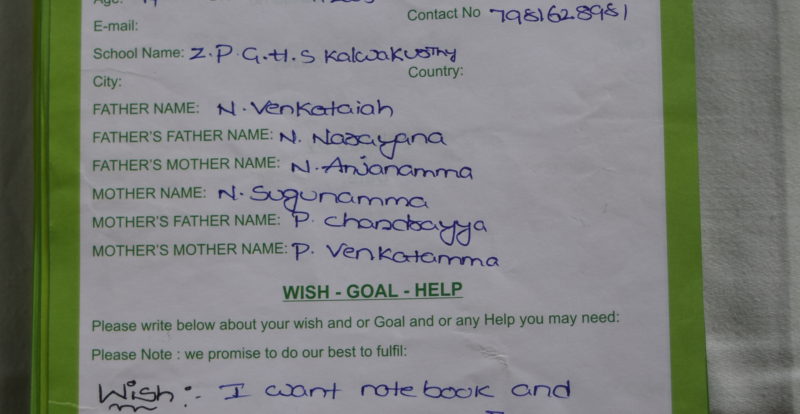 Age:
Contact No 7981628981
E-mail:
School Name: Z.P.G.H.S Kalwakurthy
City: Country:
FATHER NAME: N. Venkataiah
FATHER'S FATHER NAME: N. Narayana
FATHER'S MOTHER NAME: N. Anjanamma
MOTHER NAME: N. Sugunamma
MOTHER'S FATHER NAME: P. Chandrayya
MOTHER'S MOTHER NAME: P. Venkatamma
WISH - GOAL - HELP
Please write below about your wish and or Goal and or any Help you may need:
Please Note : we promise to do our best to fulfil:
Wish:- I want notebook and